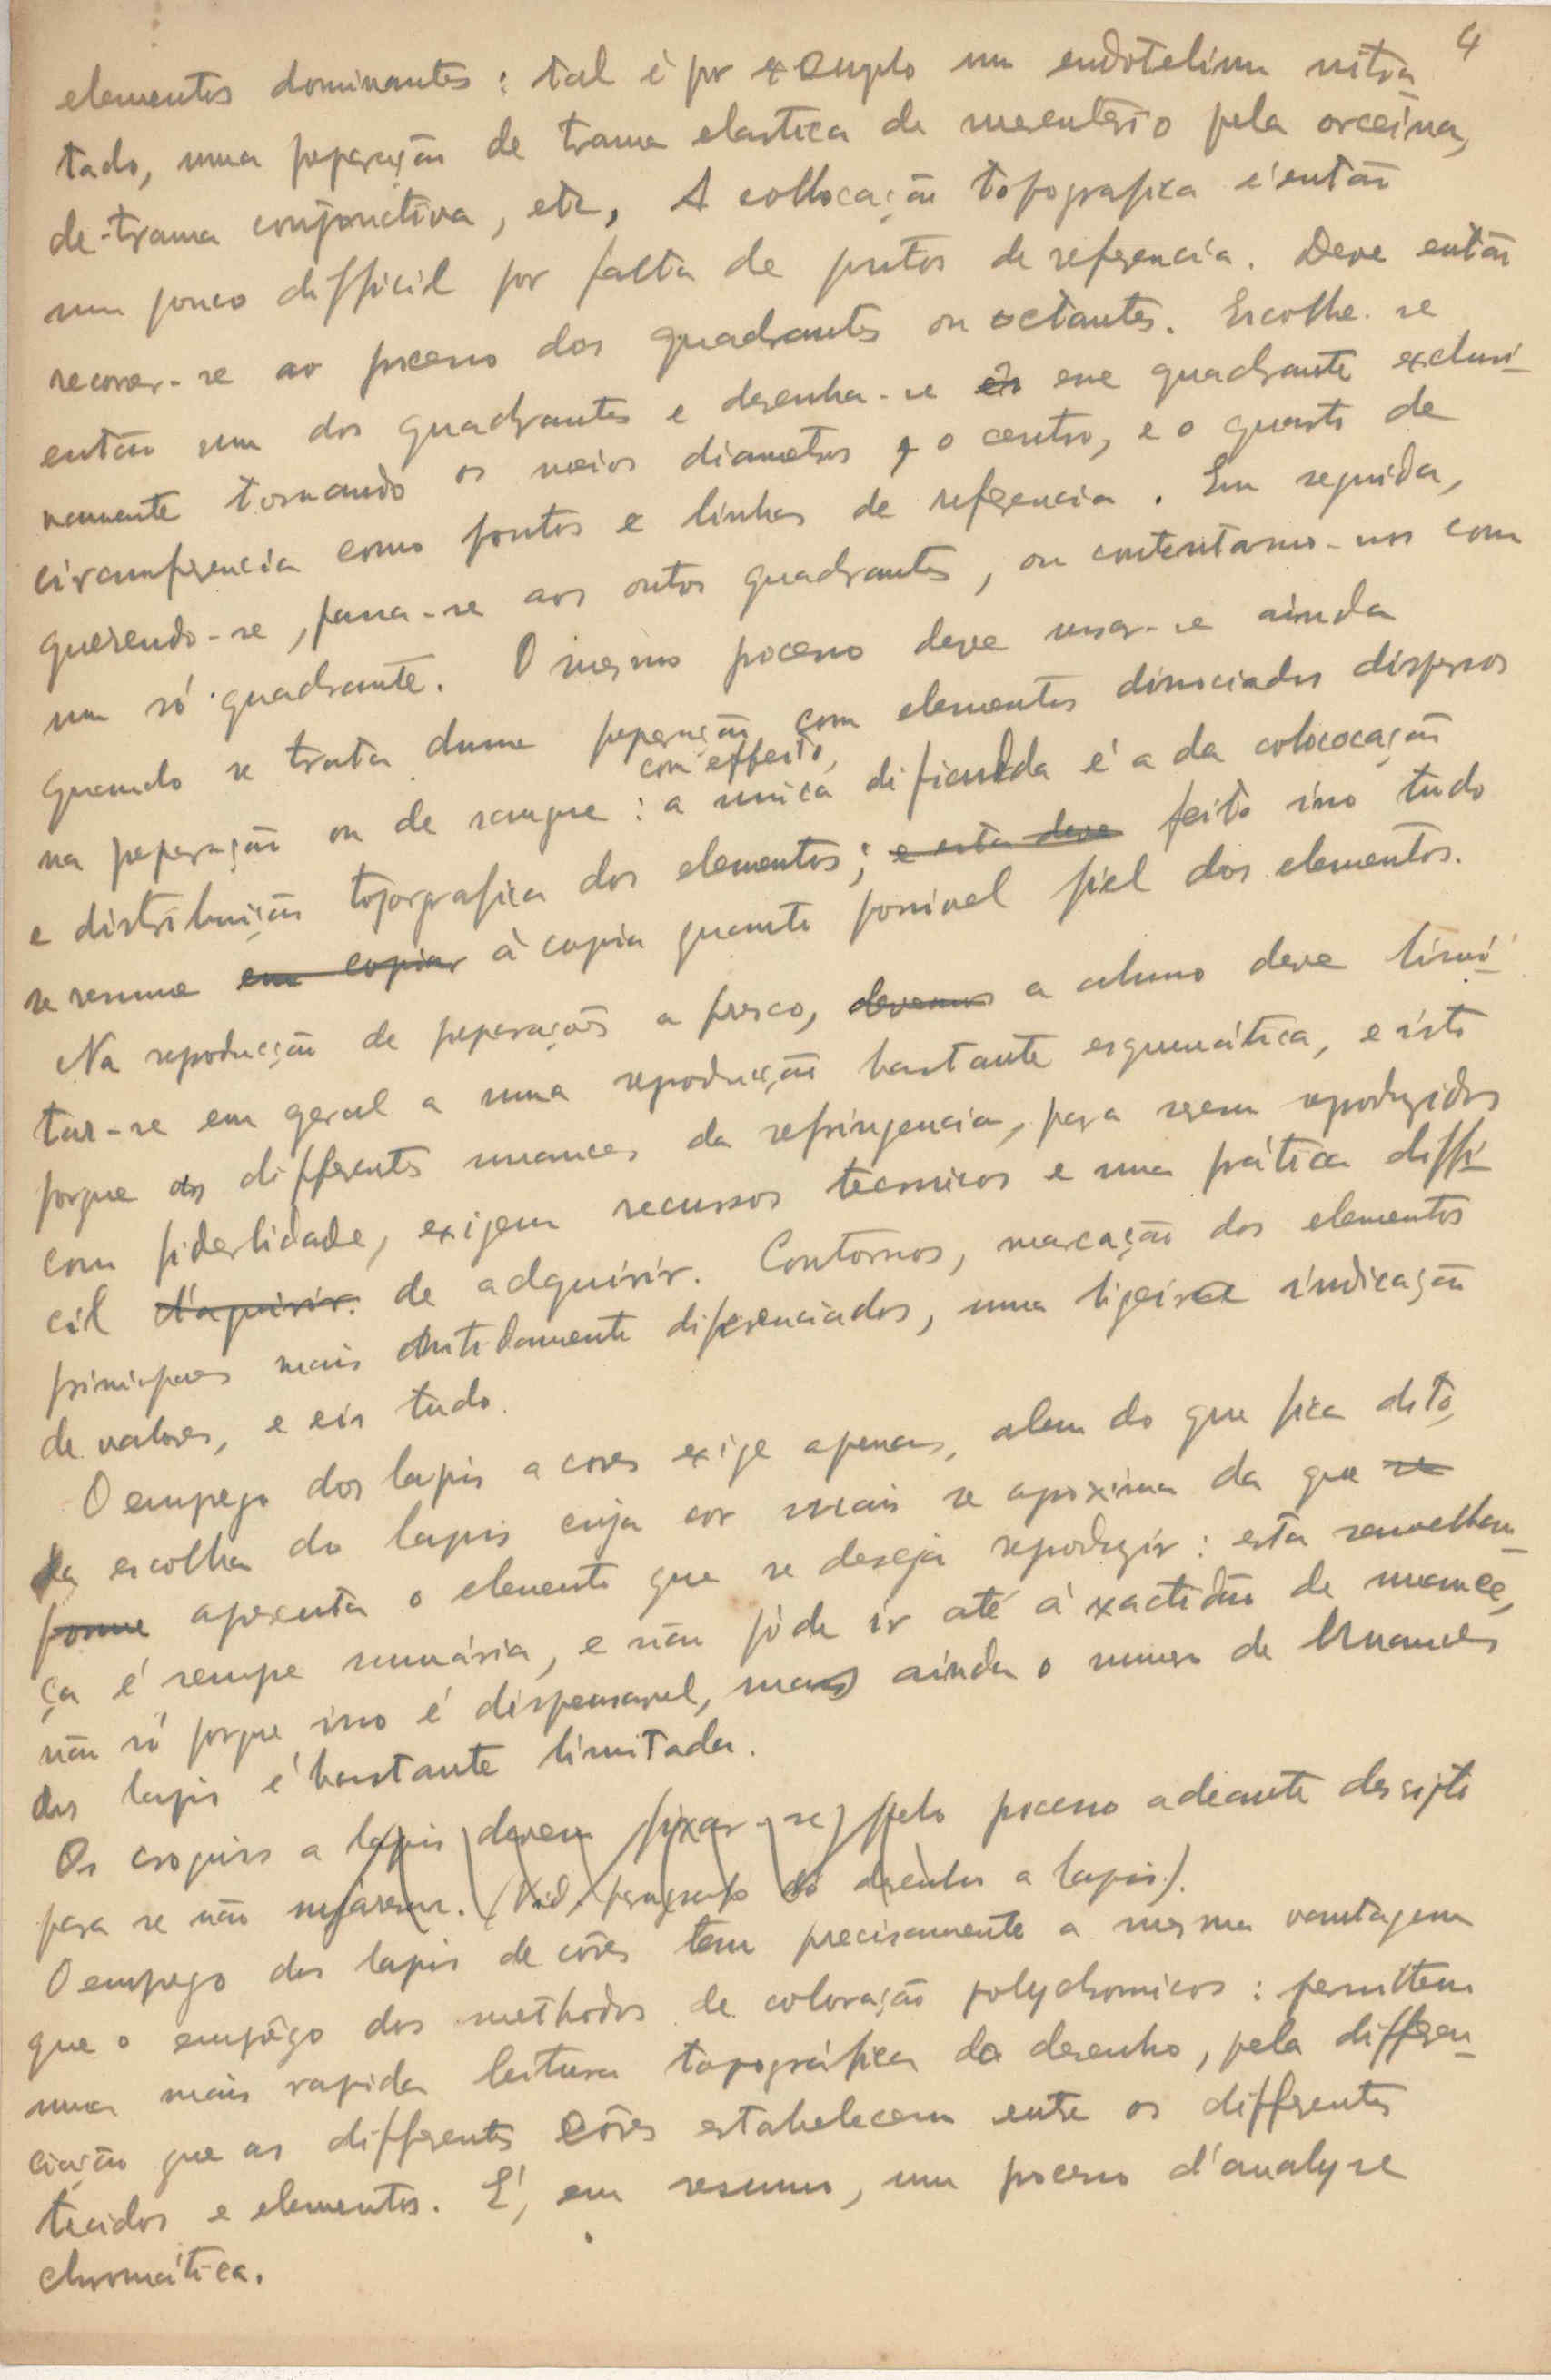 4
elementos dominantes : tal é por exemplo um endotelium nitra-
tado, uma preparação de trama elastica de mesenterio pela orceina,
de trama conjonctiva, etc, A collocação topografica é então
um pouco difficil por falta de pontos de referencia. Deve então
recorrer-se ao processo dos quadrantes ou octantes. Escolhe-se
então um dos quadrantes e desenha-se esse quadrante exclusi-
vamente tomando os meios diametros e o centro, e o quarto de
circumferencia como pontos e linhas de referencia. Em seguida,
querendo-se, passa-se aos outros quadrantes, ou contentamo-nos com
um só quadrante. O mesmo processo deve usar-se ainda
quando se trata duma preparação com elementos dissociados dispersos
com effeito,
na preparação ou de sangue : a unica dificulda é a da colococação
e distribuição topografica dos elementos; e esta deve feito isso tudo
se resume em copiar á copia quanto possivel fiel dos elementos.
Na reproducção de preparações a fresco, devemos o aluno deve limi-
tar-se em geral a uma reproducção bastante esquemática, e isto
porque as differentes nuances da refringencia, para serem reproduzidas
com fiderlidade, exigem recursos tecnicos e uma prática diffi-
cil d'aquirir. de adquirir. Contornos, marcação dos elementos
principaes mais nitidamente diferenciados, uma ligeira indicação
de valores, e eis tudo.
O emprego dos lapis a cores exige apenas, alem do que fica dito,
a escolha do lapis cuja cor mais se aproxima da que se
apresenta o elemento que se deseja reproduzir : esta semelhan-
ça é sempre sumária, e não póde ir até á exactidão de nuance,
não só porque isso é dispensavel, mas ainda o numero de nuances
dos lapis é bastante limitada.
Os croquis a lapis devem fixar-se pelo processo adeante descripto
para se não sujarem. (Vid. paragrapho do desenho a lapis).
O emprego dos lapis de côres tem precisamente a mesma vantagem
que o emprêgo dos methodos de coloração polychromicos : permittem
uma mais rapida leitura topográfica do desenho, pela differen-
ciação que as differentes côres estabelecem entre os differentes
tecidos e elementos. É, em resumo, um processo d'analyse
chromática.